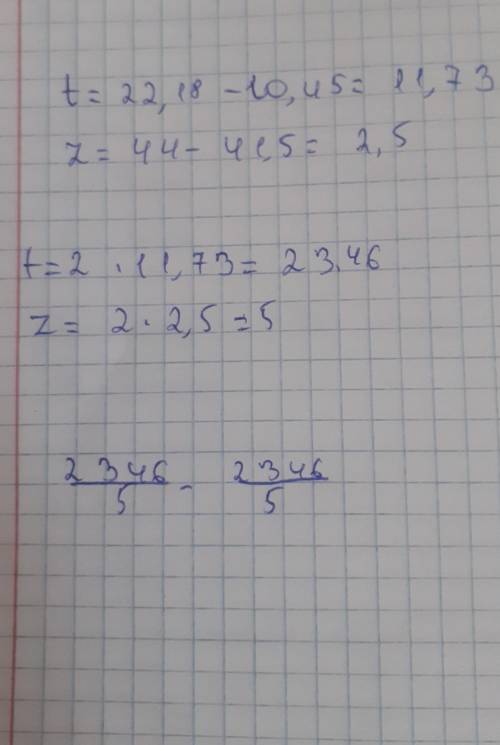 t = 22,18 - 10,45 = 11,73
z = 44 - 41,5 = 2,5
t = 2 · 11,73 = 23.46
z = 2 · 2,5 = 5
2346/5 - 2346/5